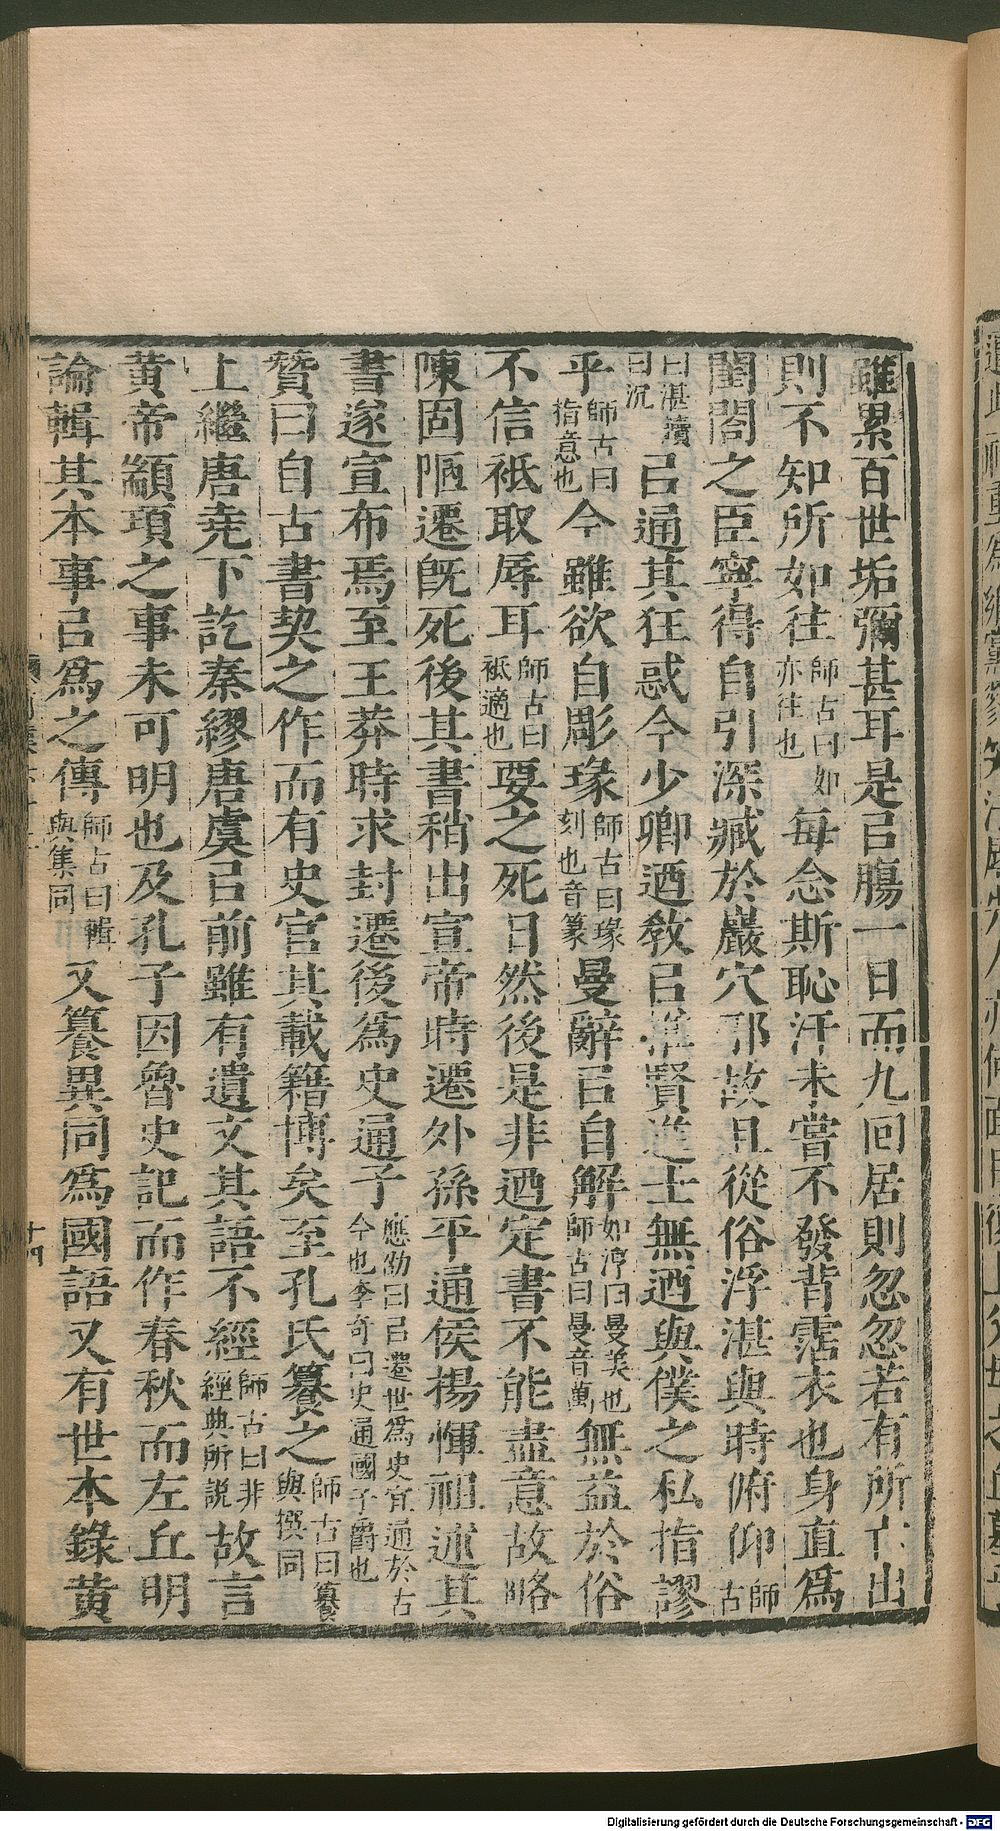 雖累百世垢彌甚耳是㠯腸一日而九回居則忽忽若有所亡出
則不知所如往師古曰如亦往也每念斯恥汗未嘗不發背霑衣也身直爲
閨閤之臣寧得自引深臧於巖穴邪故且從俗浮湛與時俯仰師古
曰湛讀曰沉㠯通其狂惑今少卿迺敎㠯推賢進士無迺與僕之私指謬
乎師古曰指意也今雖欲自彫瑑師古曰瑑刻也音篆曼辭㠯自解如淳曰曼美也師古曰曼音萬無益於俗
不信祇取辱耳師古曰祇適也要之死日然後是非迺定書不能盡意故略
陳固陋遷旣死後其書稍出宣帝時遷外孫平通侯楊惲祖述其
書遂宣布焉至王莽時求封遷後爲史通子應劭曰㠯遷世爲史官通於古今也李奇曰史通國子爵也
贊曰自古書契之作而有史官其載籍博矣至孔氏籑之師古曰籑與撰同
上繼唐堯下訖秦繆唐虞㠯前雖有遺文其語不經師古曰非經典所說故言
黃帝顓頊之事未可明也及孔子因魯史記而作春秋而左丘明
論輯其本事㠯爲之傳師古曰輯與集同又籑異同爲國語又有世本錄黃
十四
Digitalisierung gefördert durch die Deutsche Forschungsgemeinschaft - DFG